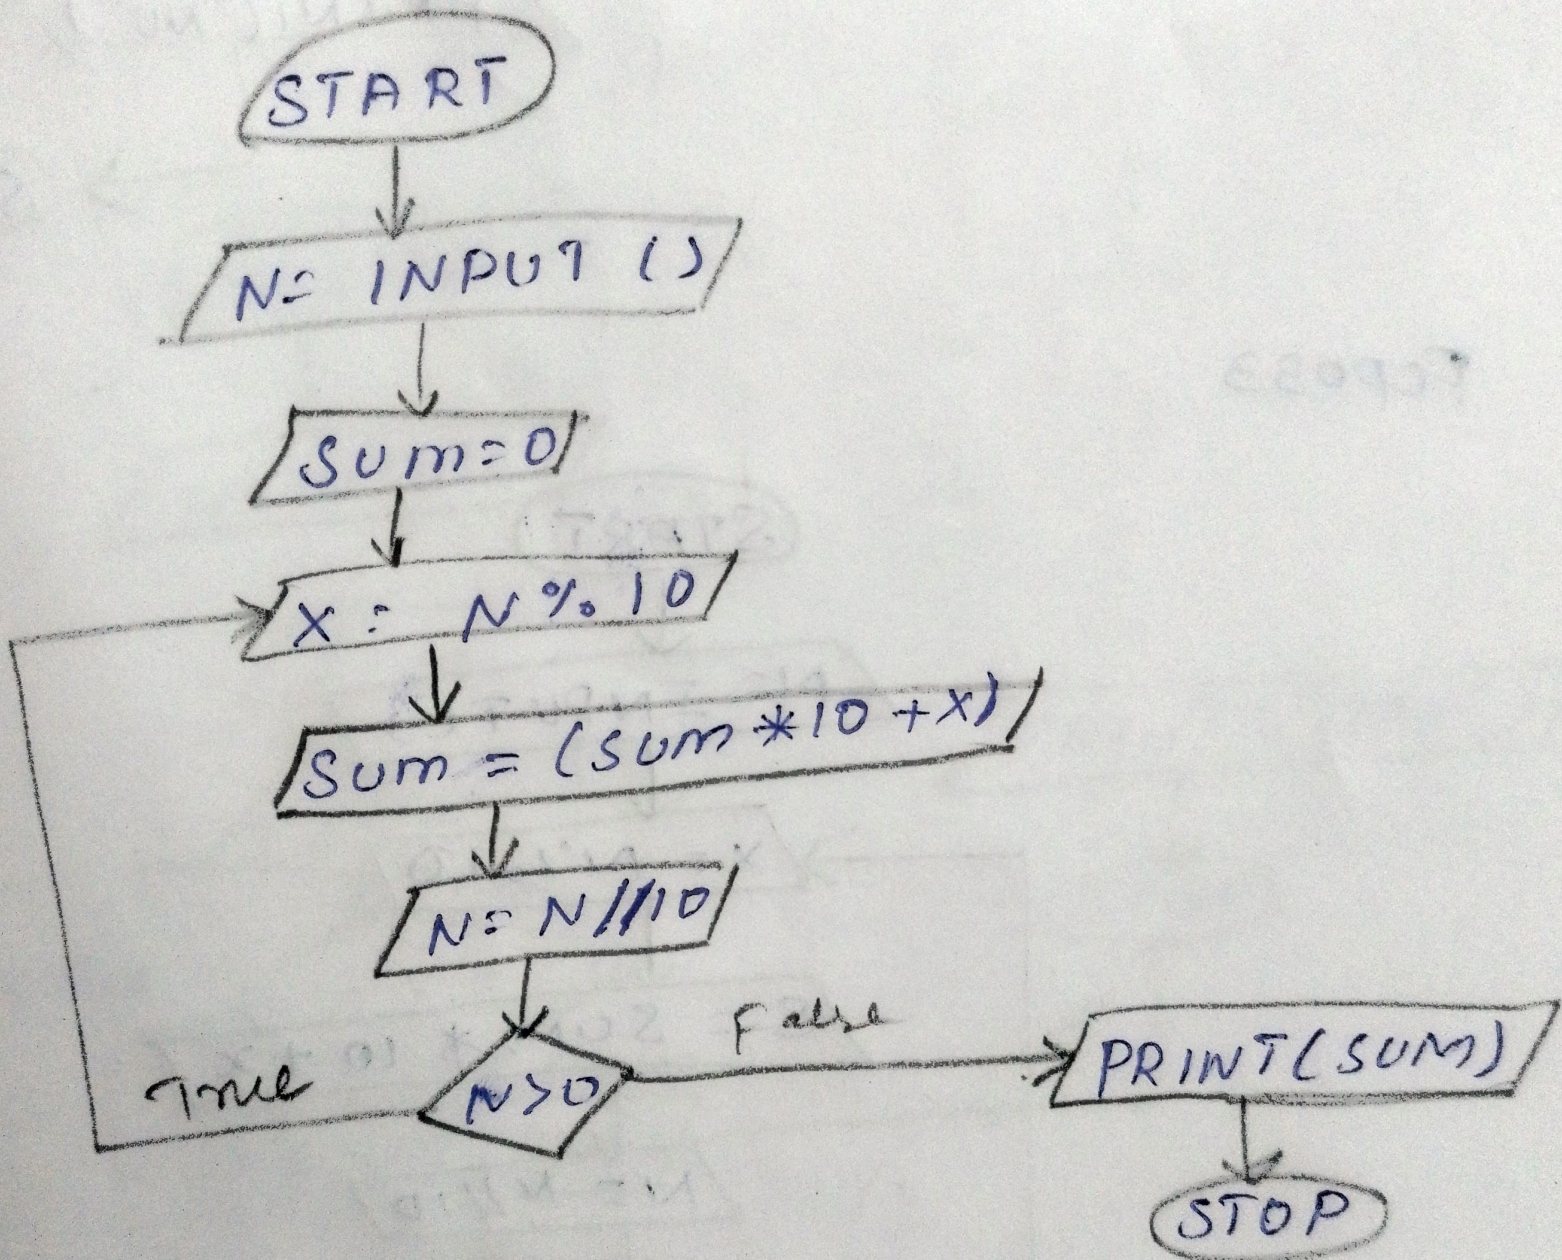 START
N= INPUT ()
Sum=0
X= N%10
Sum = (Sum *10 +X)
N= N//10
N>0
True
False
PRINT(SUM)
STOP